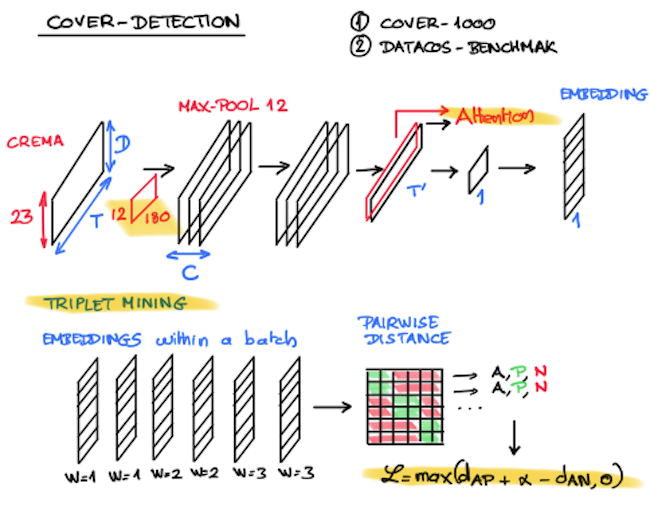 COVER-DETECTION
① COVER-1000
② DATACOS-BENCHMAK
CREMA
D
23
T
12 180
MAX-POOL 12
C
Attention
T'
1
EMBEDDING
1
TRIPLET MINING
EMBEDDINGS within a batch
W=1 W=1 W=2 W=2 W=3 W=3
PAIRWISE
DISTANCE
A, P, N
A, P, N
...
L=max(dAP + α - dAN, 0)